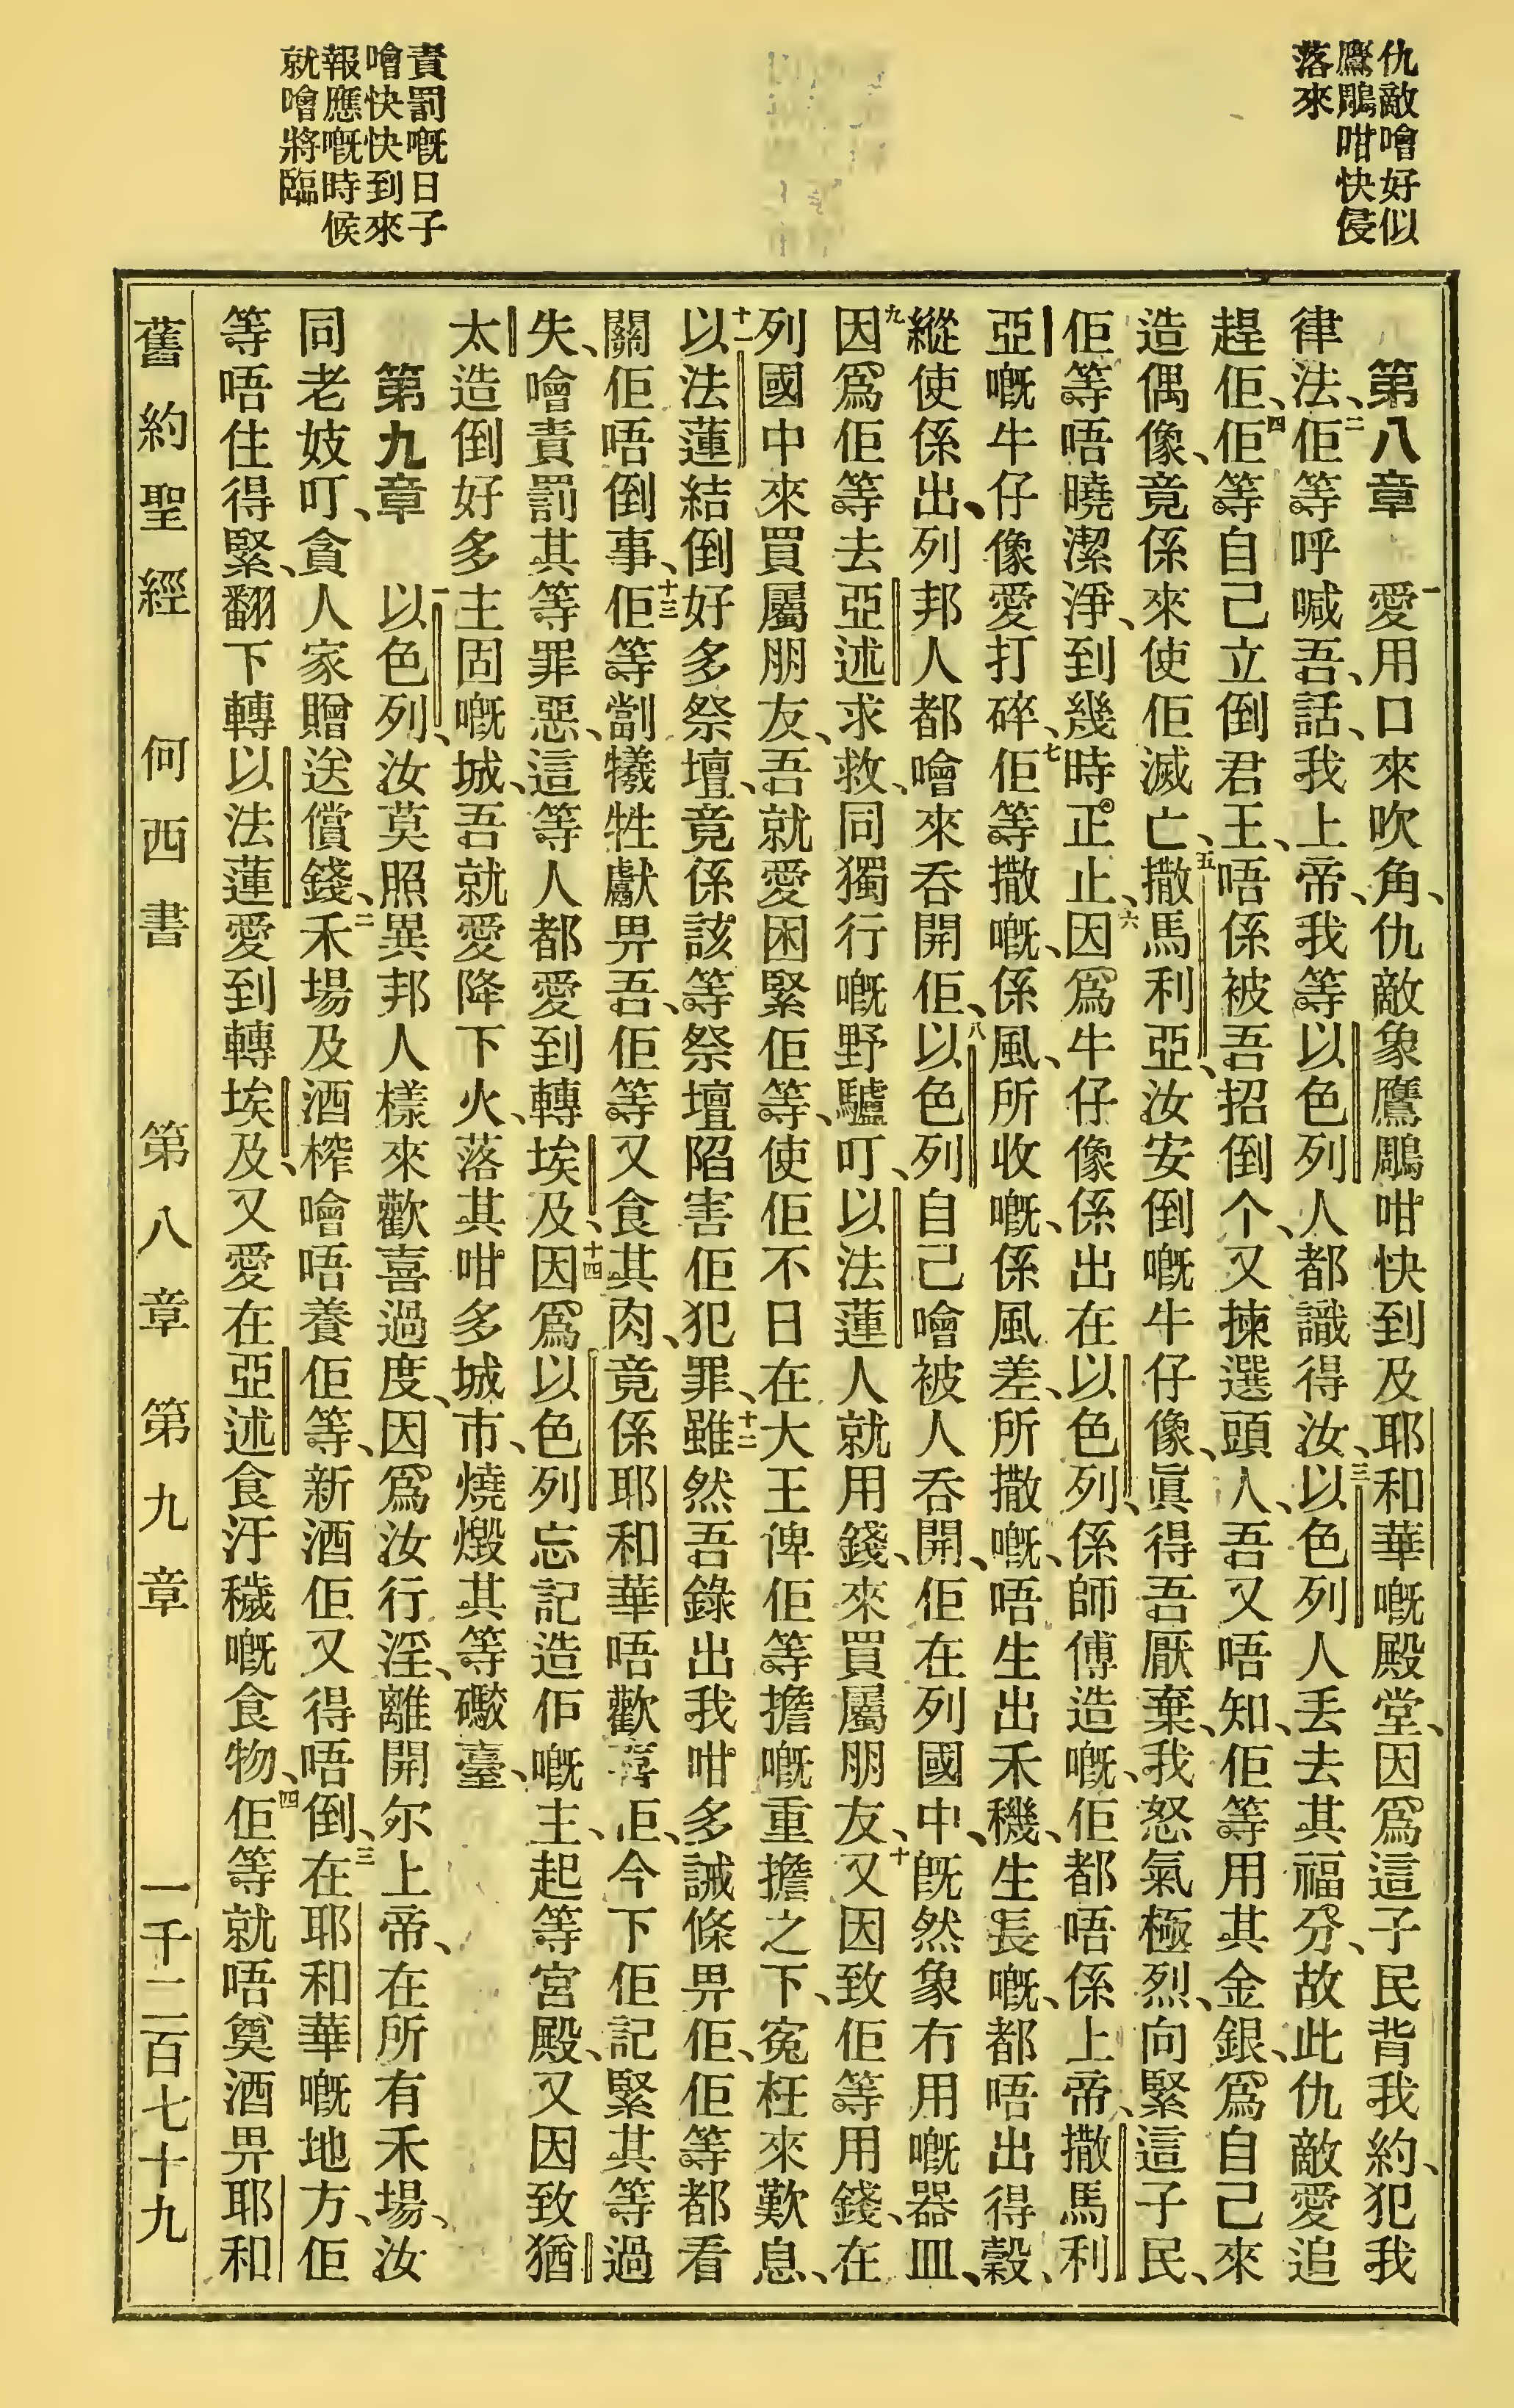 仇敵噲好似
鷹鵰咁快侵
落來
責罰嘅日子
噲快快到來
報應嘅時候
就噲將臨
第八章 一愛用口來吹角、仇敵象鷹鵰咁快到及耶和華嘅殿堂、因爲這子民背我約、犯我
律法、二佢等呼喊吾、話、我上帝、我等以色列人都識得汝、三以色列人丢去其福分、故此仇敵愛追
趕佢、四佢等自己立倒君王、唔係被吾招倒个、又揀選頭人、吾又唔知、佢等用其金銀、爲自己來
造偶像、竟係來使佢滅亡、五撒馬利亞、汝安倒嘅牛仔像、眞得吾厭棄、我怒氣極烈、向緊這子民、
佢等唔曉潔淨、到幾時正止、六因爲牛仔像係出在以色列、係師傅造嘅、佢都唔係上帝、撒馬利
亞嘅牛仔像愛打碎、七佢等撒嘅、係風、所收嘅、係風差、所撒嘅、唔生出禾穖、生長嘅、都唔出得穀、
縱使係出、列邦人都噲來吞開佢、八以色列自己噲被人吞開、佢在列國中、旣然象冇用嘅器皿、
九因爲佢等去亞述求救、同獨行嘅野驢叮、以法蓮人就用錢、來買屬朋友、十又因致佢等用錢、在
列國中來買屬朋友、吾就愛困緊佢等、使佢不日在大王俾佢等擔嘅重擔之下、寃枉來歎息、
十一以法蓮結倒好多祭壇、竟係該等祭壇陷害佢犯罪、十二雖然吾錄出我咁多誡條畀佢、佢等都看
關佢唔倒事、十三佢等劏犧牲獻畀吾、佢等又食其肉、竟係耶和華唔歡喜佢、今下佢記緊其等過
失、噲責罰其等罪惡、這等人都愛到轉埃及、十四因爲以色列忘記造佢嘅主、起等宮殿、又因致猶
太造倒好多主固嘅城、吾就愛降下火、落其咁多城市、燒燬其等礮臺、
第九章 一以色列、汝莫照異邦人樣來歡喜過度、因爲汝行淫、離開尔上帝、在所有禾場、汝
同老妓叮、貪人家贈送償錢、二禾場及酒榨噲唔養佢等、新酒佢又得唔倒、三在耶和華嘅地方、佢
等唔住得緊、翻下轉以法蓮愛到轉埃及、又愛在亞述食汙穢嘅食物、四佢等就唔奠酒畀耶和
舊約聖經 何西書 第八章 第九章 一千二百七十九